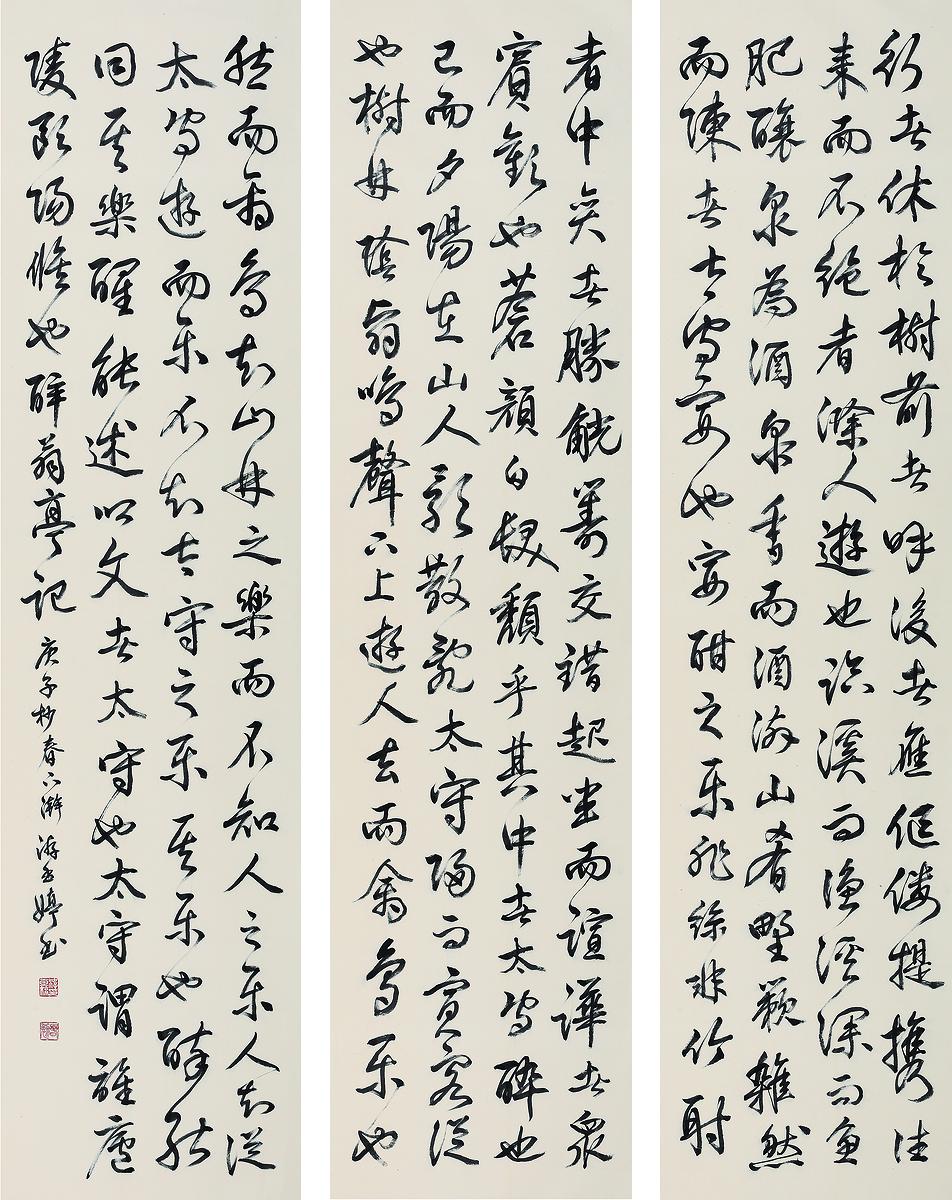 行者休於樹前者呼後者應傴僂提攜往
来而不绝者滁人遊也临溪而渔溪深而鱼
肥釀泉為酒泉香而酒洌山肴野蔌雜然
而陳者太守宴也宴酣之乐非絲非竹射
者中奕者勝觥籌交錯起坐而諠譁者衆
賓歡也蒼顏白髮頹乎其中者太守醉也
已而夕陽在山人影散亂太守歸而賓客從
也樹林蔭翳鳴聲下上遊人去而禽鳥乐也
然而禽鳥知山林之樂而不知人之乐人知從
太守遊而乐不知太守之乐其乐也醉能
同其樂醒能述以文者太守也太守謂誰廬
陵歐陽脩也醉翁亭記 庚子杪春下澣 游玉婷书